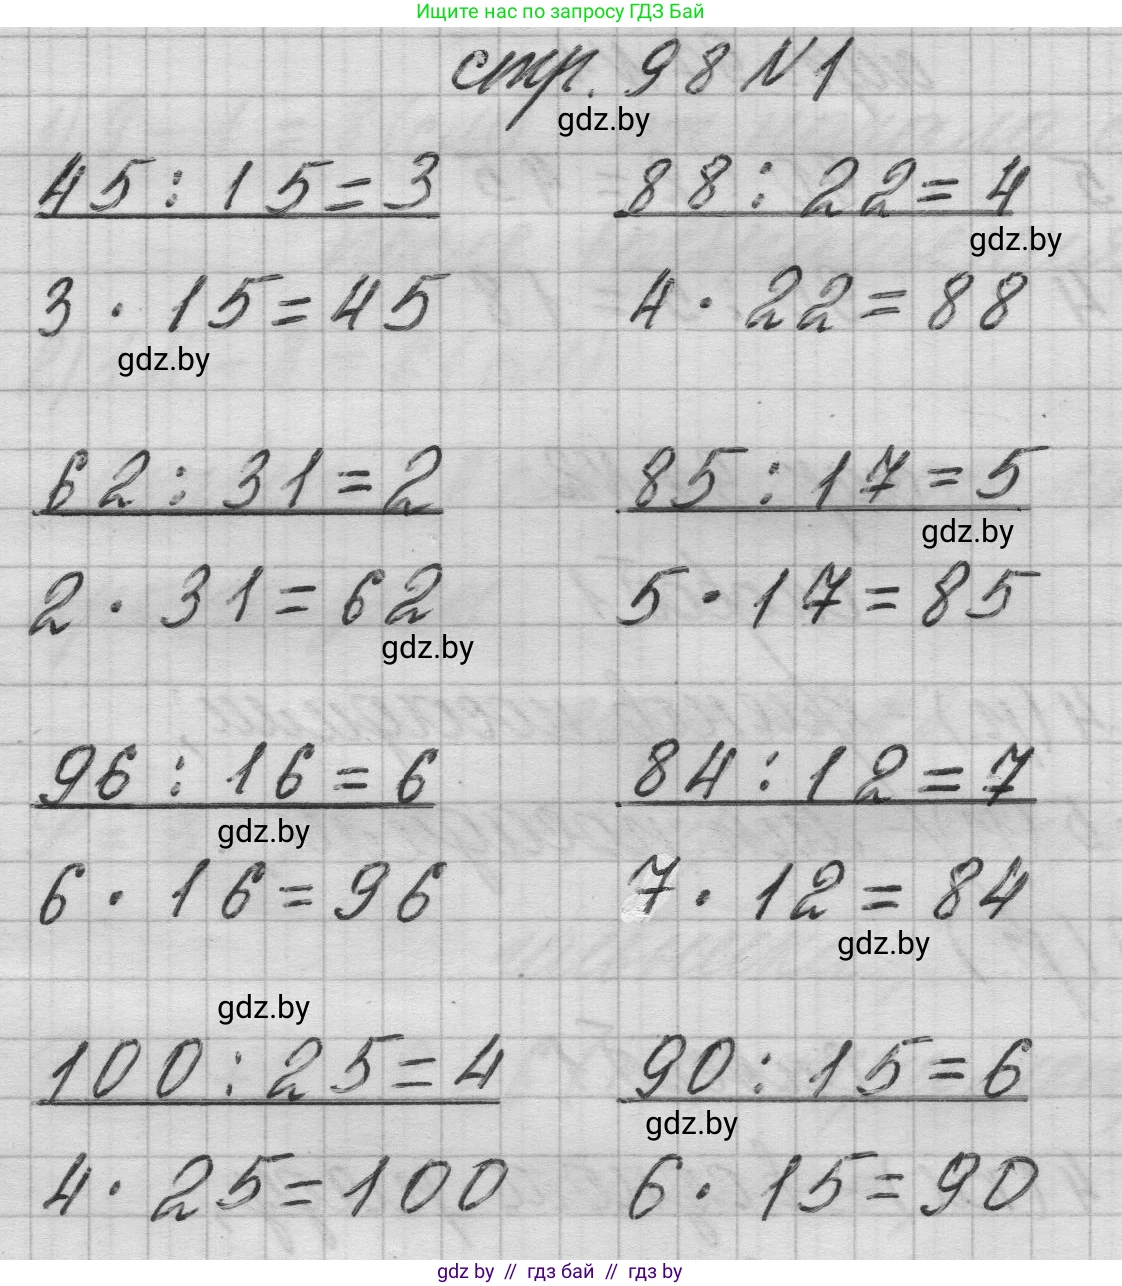 Ищите нас по запросу ГДЗ Бай
стр. 98 N1
gdz.by
45 : 15 = 3 88 : 22 = 4
gdz.by
3 · 15 = 45 4 · 22 = 88
gdz.by
62 : 31 = 2 85 : 17 = 5
gdz.by
2 · 31 = 62 5 · 17 = 85
gdz.by
96 : 16 = 6 84 : 12 = 7
gdz.by
6 · 16 = 96 7 · 12 = 84
gdz.by
gdz.by
100 : 25 = 4 90 : 15 = 6
gdz.by
4 · 25 = 100 6 · 15 = 90
gdz by // гдз бай // гдз by